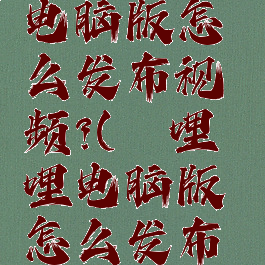 电脑版怎
么发布视
频?( 哩
哩电脑版
怎么发布